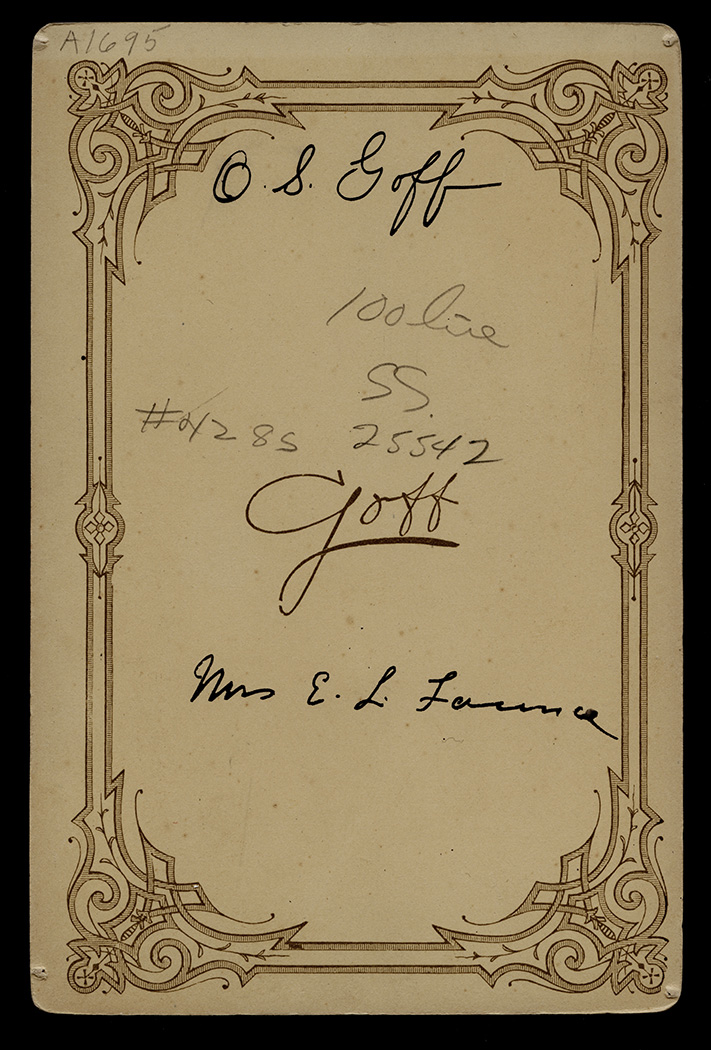 A1695
O. S. Goff
100 line
SS.
#4285 25542
Goff
Mrs E. L.